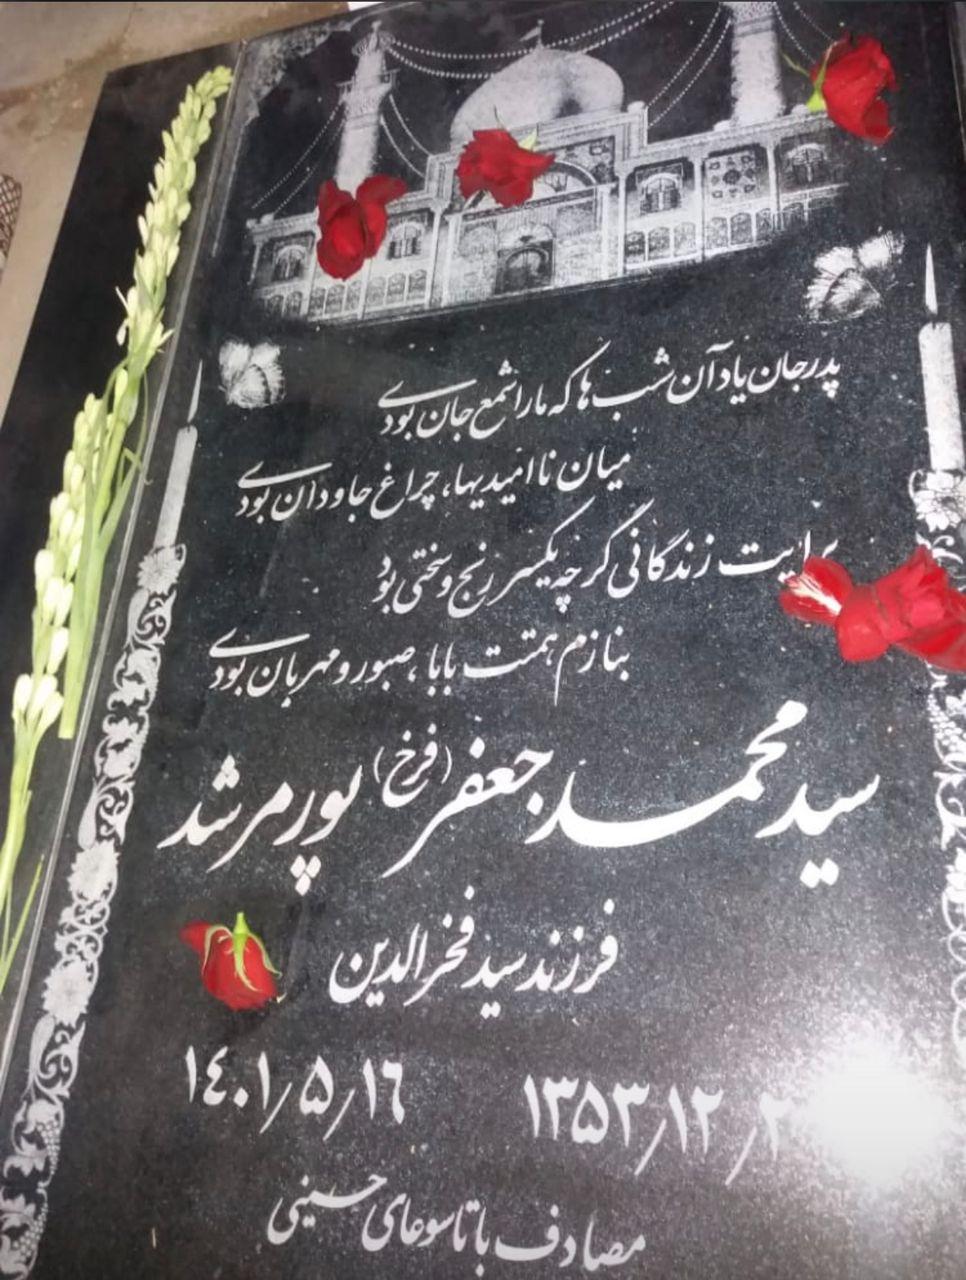 پدر جان یاد آن شب ها که ما را شمع جان بودی
میان ناامیدیها، چراغ جاودان بودی
برایت زندگانی گرچه یکسر رنج و سختی بود
بنازم همتت بابا، صبور و مهربان بودی
سید محمد جعفر (فرخ) پور مرشد
فرزند سید فخرالدین
۱۳۵۳/۱۲/ ۱۴۰۱/۵/۱۶
مصادف با تاسوعای حسینی